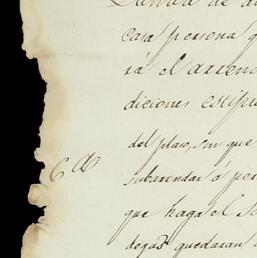 casa persona q
rá el arren
diciones estipu
del plazo, sin que
6.ª
subarrendar á per
que haga el S
degas quedaran